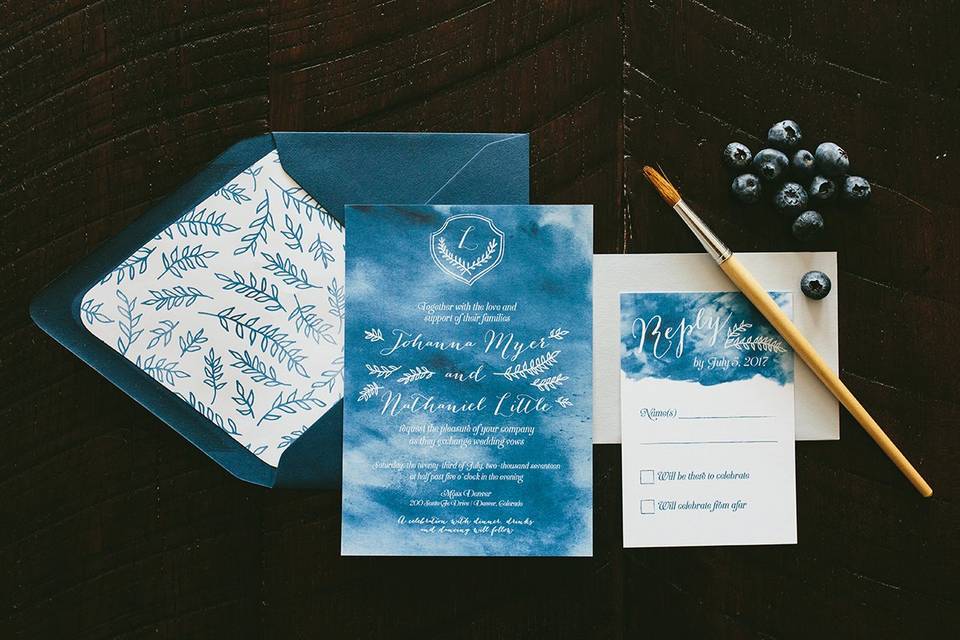 L
Together with the love and
support of their families
Johanna Myer
and
Nathaniel Little
request the pleasure of your company
as they exchange wedding vows
Saturday, the twenty-third of July, two-thousand seventeen
at half past five o'clock in the evening
Moss Denver
200 Santa Fe Drive | Denver, Colorado
A celebration with dinner, drinks
and dancing will follow
Reply
by July 5, 2017
Name(s)
Will be there to celebrate
Will celebrate from afar